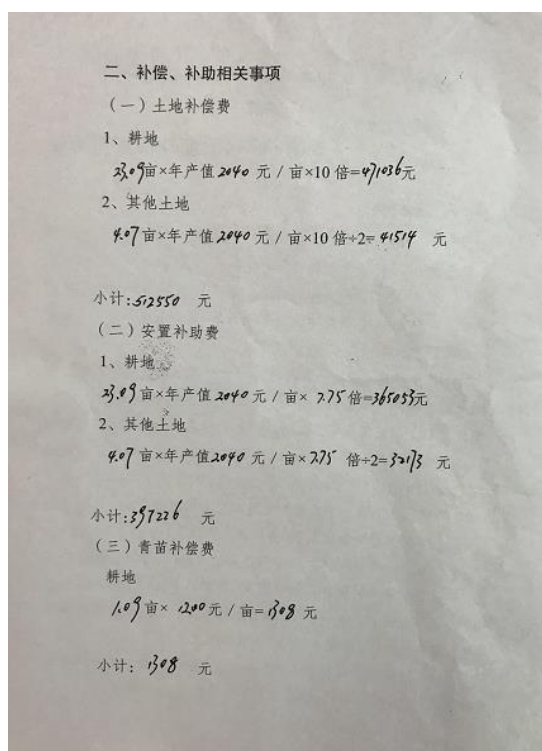 二、补偿、补助相关事项
（一）土地补偿费
1、耕地
23.09亩×年产值2040元/亩×10倍=471036元
2、其他土地
4.07亩×年产值2040元/亩×10倍÷2=41514 元
小计:512550 元
（二）安置补助费
1、耕地
23.09亩×年产值2040元/亩×7.75倍=365053元
2、其他土地
4.07亩×年产值2040元/亩×7.75倍÷2=32173 元
小计:397226 元
（三）青苗补偿费
耕地
1.09亩×1200元/亩=1308元
小计: 1308 元